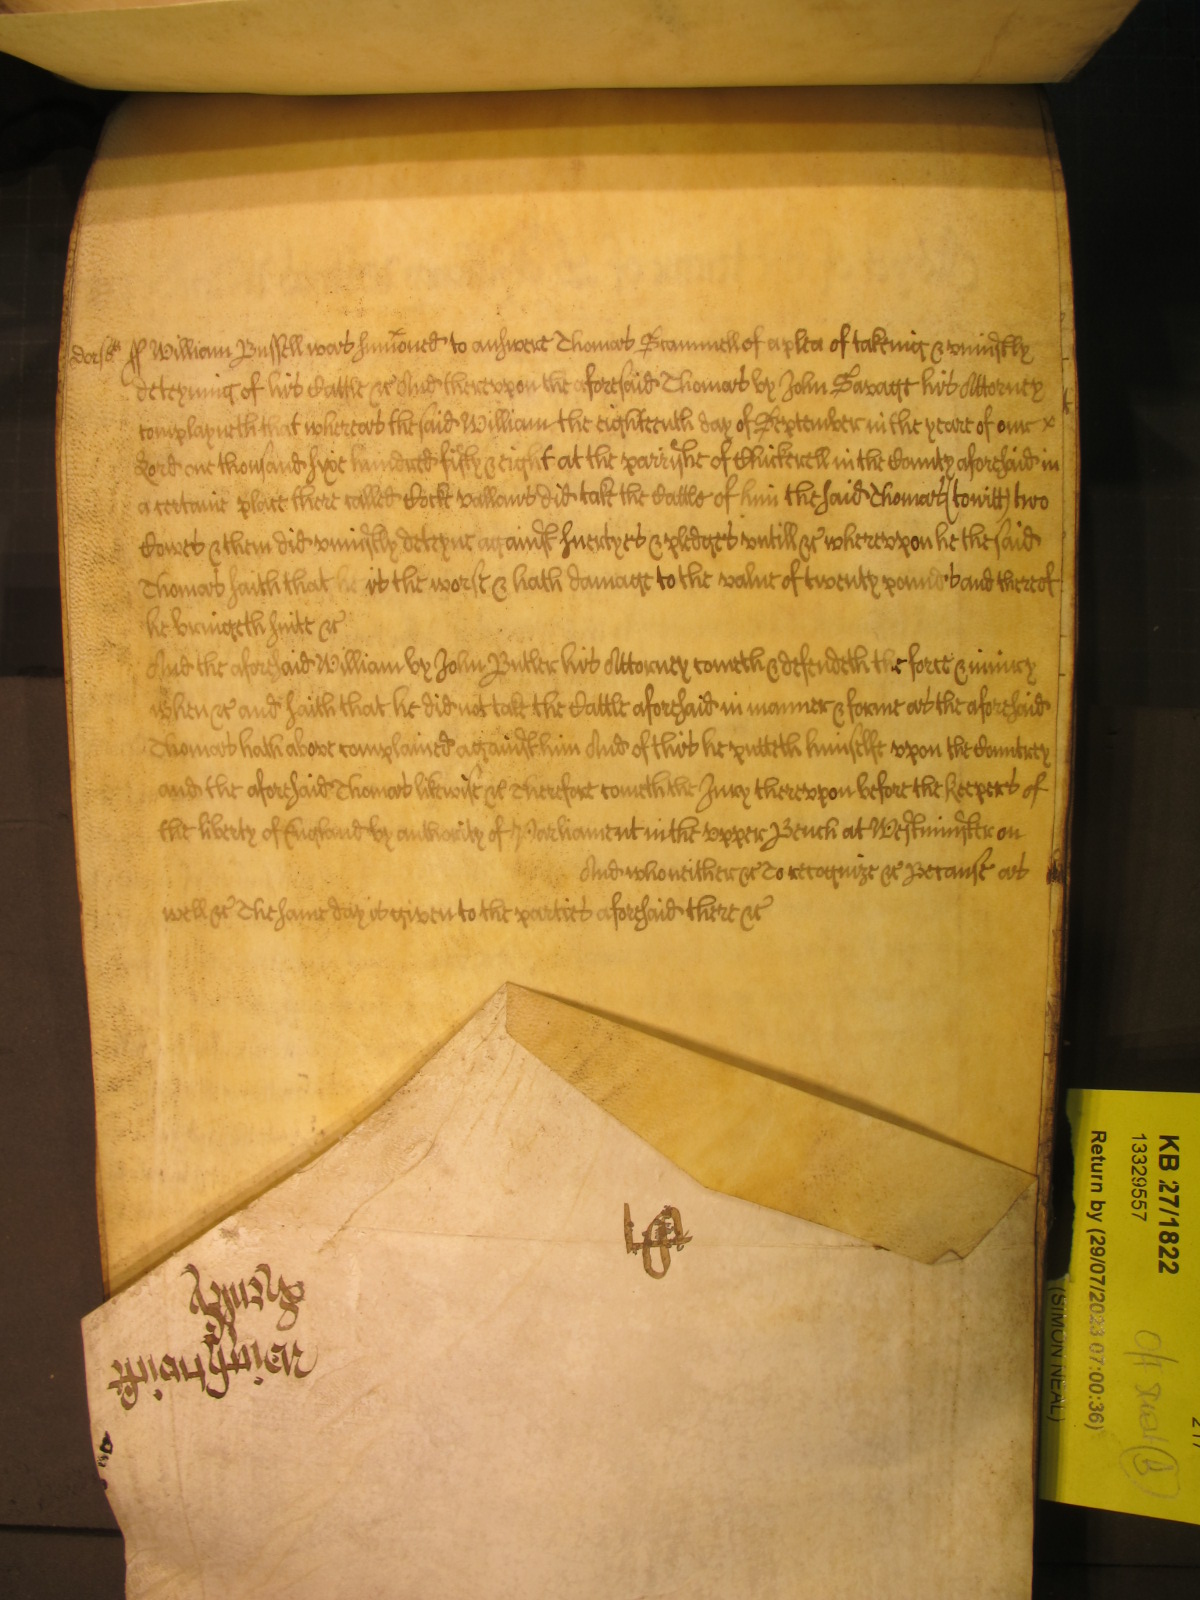 dorsṫ ss William Bussell was sum̄oned to answere Thomas Scammell of a plea of takeing & uniustly
deteyning of his Cattle &c And thereupon the aforesaid Thomas by John Savage his Attorney
complayneth that whereas the said William the eighteenth day of September in the yeare of our x
Lord one thousand sixe hundred fifty & eight at the parrishe of Chickerell in the County aforesaid in
a certaine place there called Cock vallans did take the Cattle of him the said Thomas (to witt) two
Cowes & them did uniustly deteyne against suertyes & pledges untill &c whereupon he the said
Thomas saith that he is the worse & hath damage to the value of twenty pounds and thereof
he bringeth suite &c
And the aforesaid William by John Butler his Attorney cometh & defendeth the force & iniury
when &c and saith that he did not take the Cattle aforesaid in manner & forme as the aforesaid
Thomas hath above complained against him And of this he putteth himselfe upon the Countrey
and the aforesaid Thomas likewise &c Therefore cometh the Jury thereupon before the keepers of
the liberty of England by authority of Parliament in the upper Bench at Westminster on
And who neither &c To recognize &c Because as
well &c The same day is given to the parties aforesaid there &c
KB 27/1822
13329557
Return by (29/07/2023 07:00:36)
(SIMON NEAL)